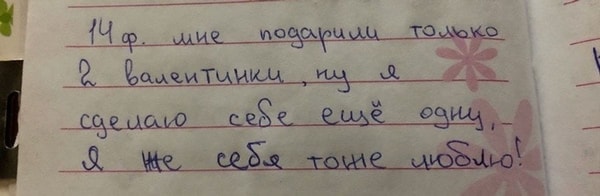 14 ф. мне подарили только
2 валентинки, ну я
сделаю себе ещё одну, –
Я же себя тоже люблю!